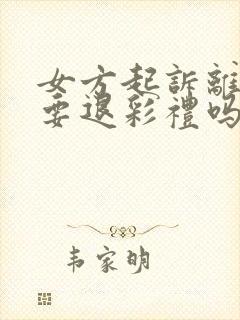 女方起訴離
要退彩禮吗
韦家明